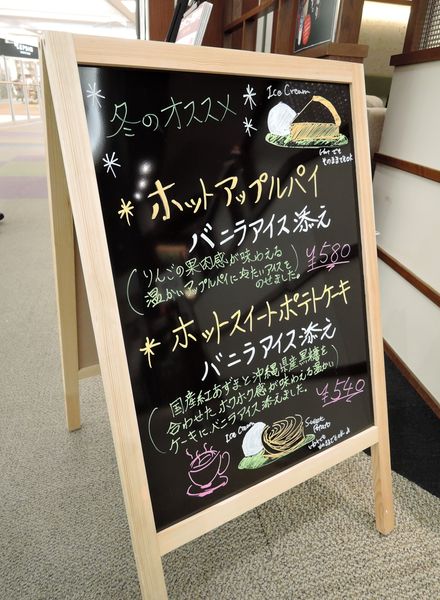 冬のオススメ
Ice Cream
Hotでも
そのままでもOK
ホットアップルパイ
バニラアイス添え
りんごの果肉感が味わえる
温かいアップルパイに冷たいアイスを
のせました。
¥580
ホットスイートポテトケーキ
バニラアイス添え
国産紅あずまと沖縄県産黒糖を
合わせた、ホクホク感が味わえる温かい
ケーキにバニラアイス添えました。
¥540
Ice Cream
Sweet
Potato